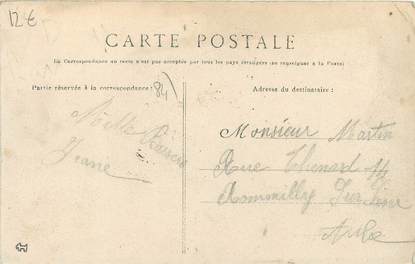 12€
CARTE POSTALE
La Correspondance au recto n'est pas acceptée par tous les pays étrangers (se renseigner à la Poste)
Partie réservée à la correspondance:
84)
Adresse du destinataire:
Noëlle
Jeane
Monsieur Martin
Rue Thenard
Rommilly Sur Seine
Aube